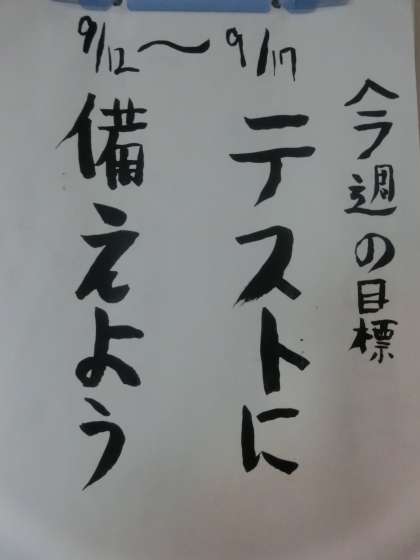 今週の目標
9/12～9/17
テストに
備えよう